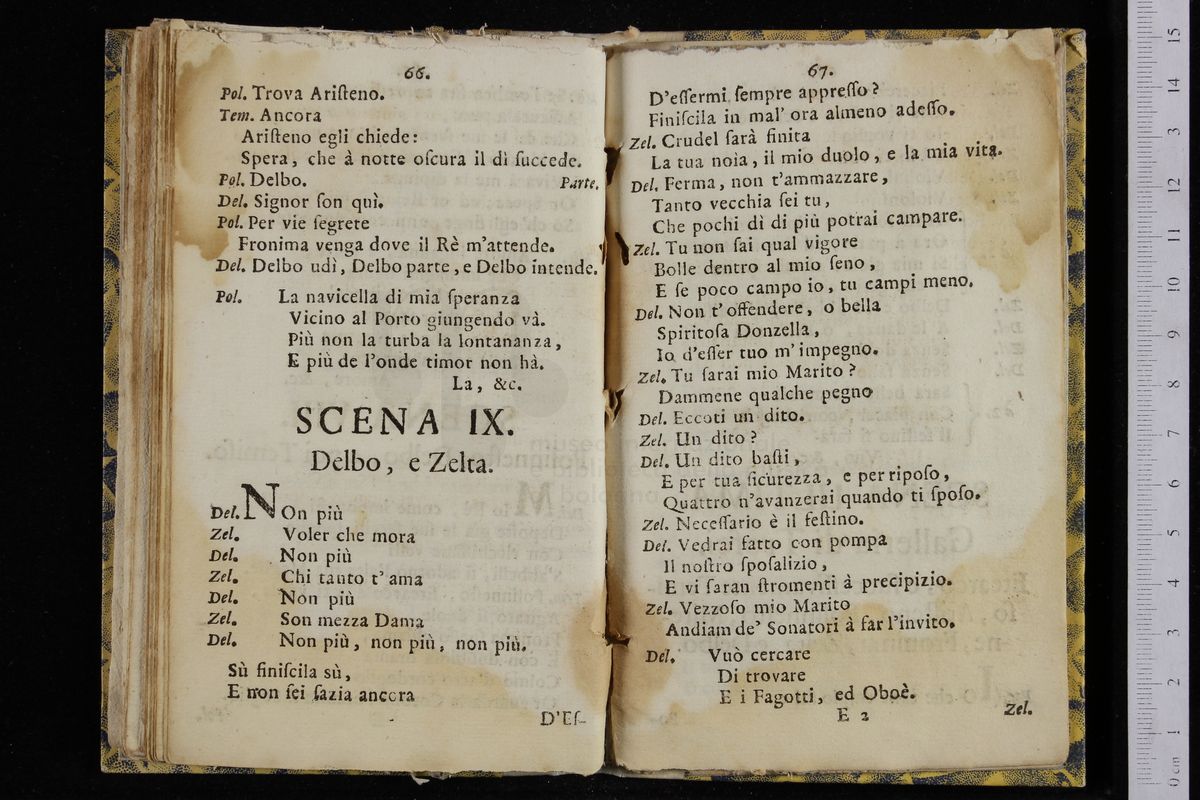 66.
Pol. Trova Ariſteno.
Tem. Ancora
Ariſteno egli chiede:
Spera, che à notte oſcura il dì ſuccede.
Parte.
Pol. Delbo.
Del. Signor ſon quì.
Pol. Per vie ſegrete
Fronima venga dove il Rè m'attende.
Del. Delbo udì, Delbo parte, e Delbo intende.
Pol. La navicella di mia ſperanza
Vicino al Porto giungendo và.
Più non la turba la lontananza,
E più de l'onde timor non hà.
La, &c.
SCENA IX.
Delbo, e Zelta.
Del. NOn più
Zel. Voler che mora
Del. Non più
Zel. Chi tanto t'ama
Del. Non più
Zel. Son mezza Dama
Del. Non più, non più, non più.
Sù finiſcila sù,
E non ſei ſazia ancora
D'Eſ-
67.
D'eſſermi ſempre appreſſo?
Finiſcila in mal' ora almeno adeſſo.
Zel. Crudel ſarà finita
La tua noia, il mio duolo, e la mia vita.
Del. Ferma, non t'ammazzare,
Tanto vecchia ſei tu,
Che pochi dì di più potrai campare.
Zel. Tu non ſai qual vigore
Bolle dentro al mio ſeno,
E ſe poco campo io, tu campi meno.
Del. Non t'offendere, o bella
Spiritoſa Donzella,
Io d'eſſer tuo m'impegno.
Zel. Tu ſarai mio Marito?
Dammene qualche pegno
Del. Eccoti un dito.
Zel. Un dito?
Del. Un dito baſti,
E per tua ſicurezza, e per ripoſo,
Quattro n'avanzerai quando ti ſpoſo.
Zel. Neceſſario è il feſtino.
Del. Vedrai fatto con pompa
Il noſtro ſpoſalizio,
E vi ſaran ſtromenti à precipizio.
Zel. Vezzoſo mio Marito
Andiam de' Sonatori à far l'invito.
Del. Vuò cercare
Di trovare
E i Fagotti, ed Oboè.
E 2
Zel.